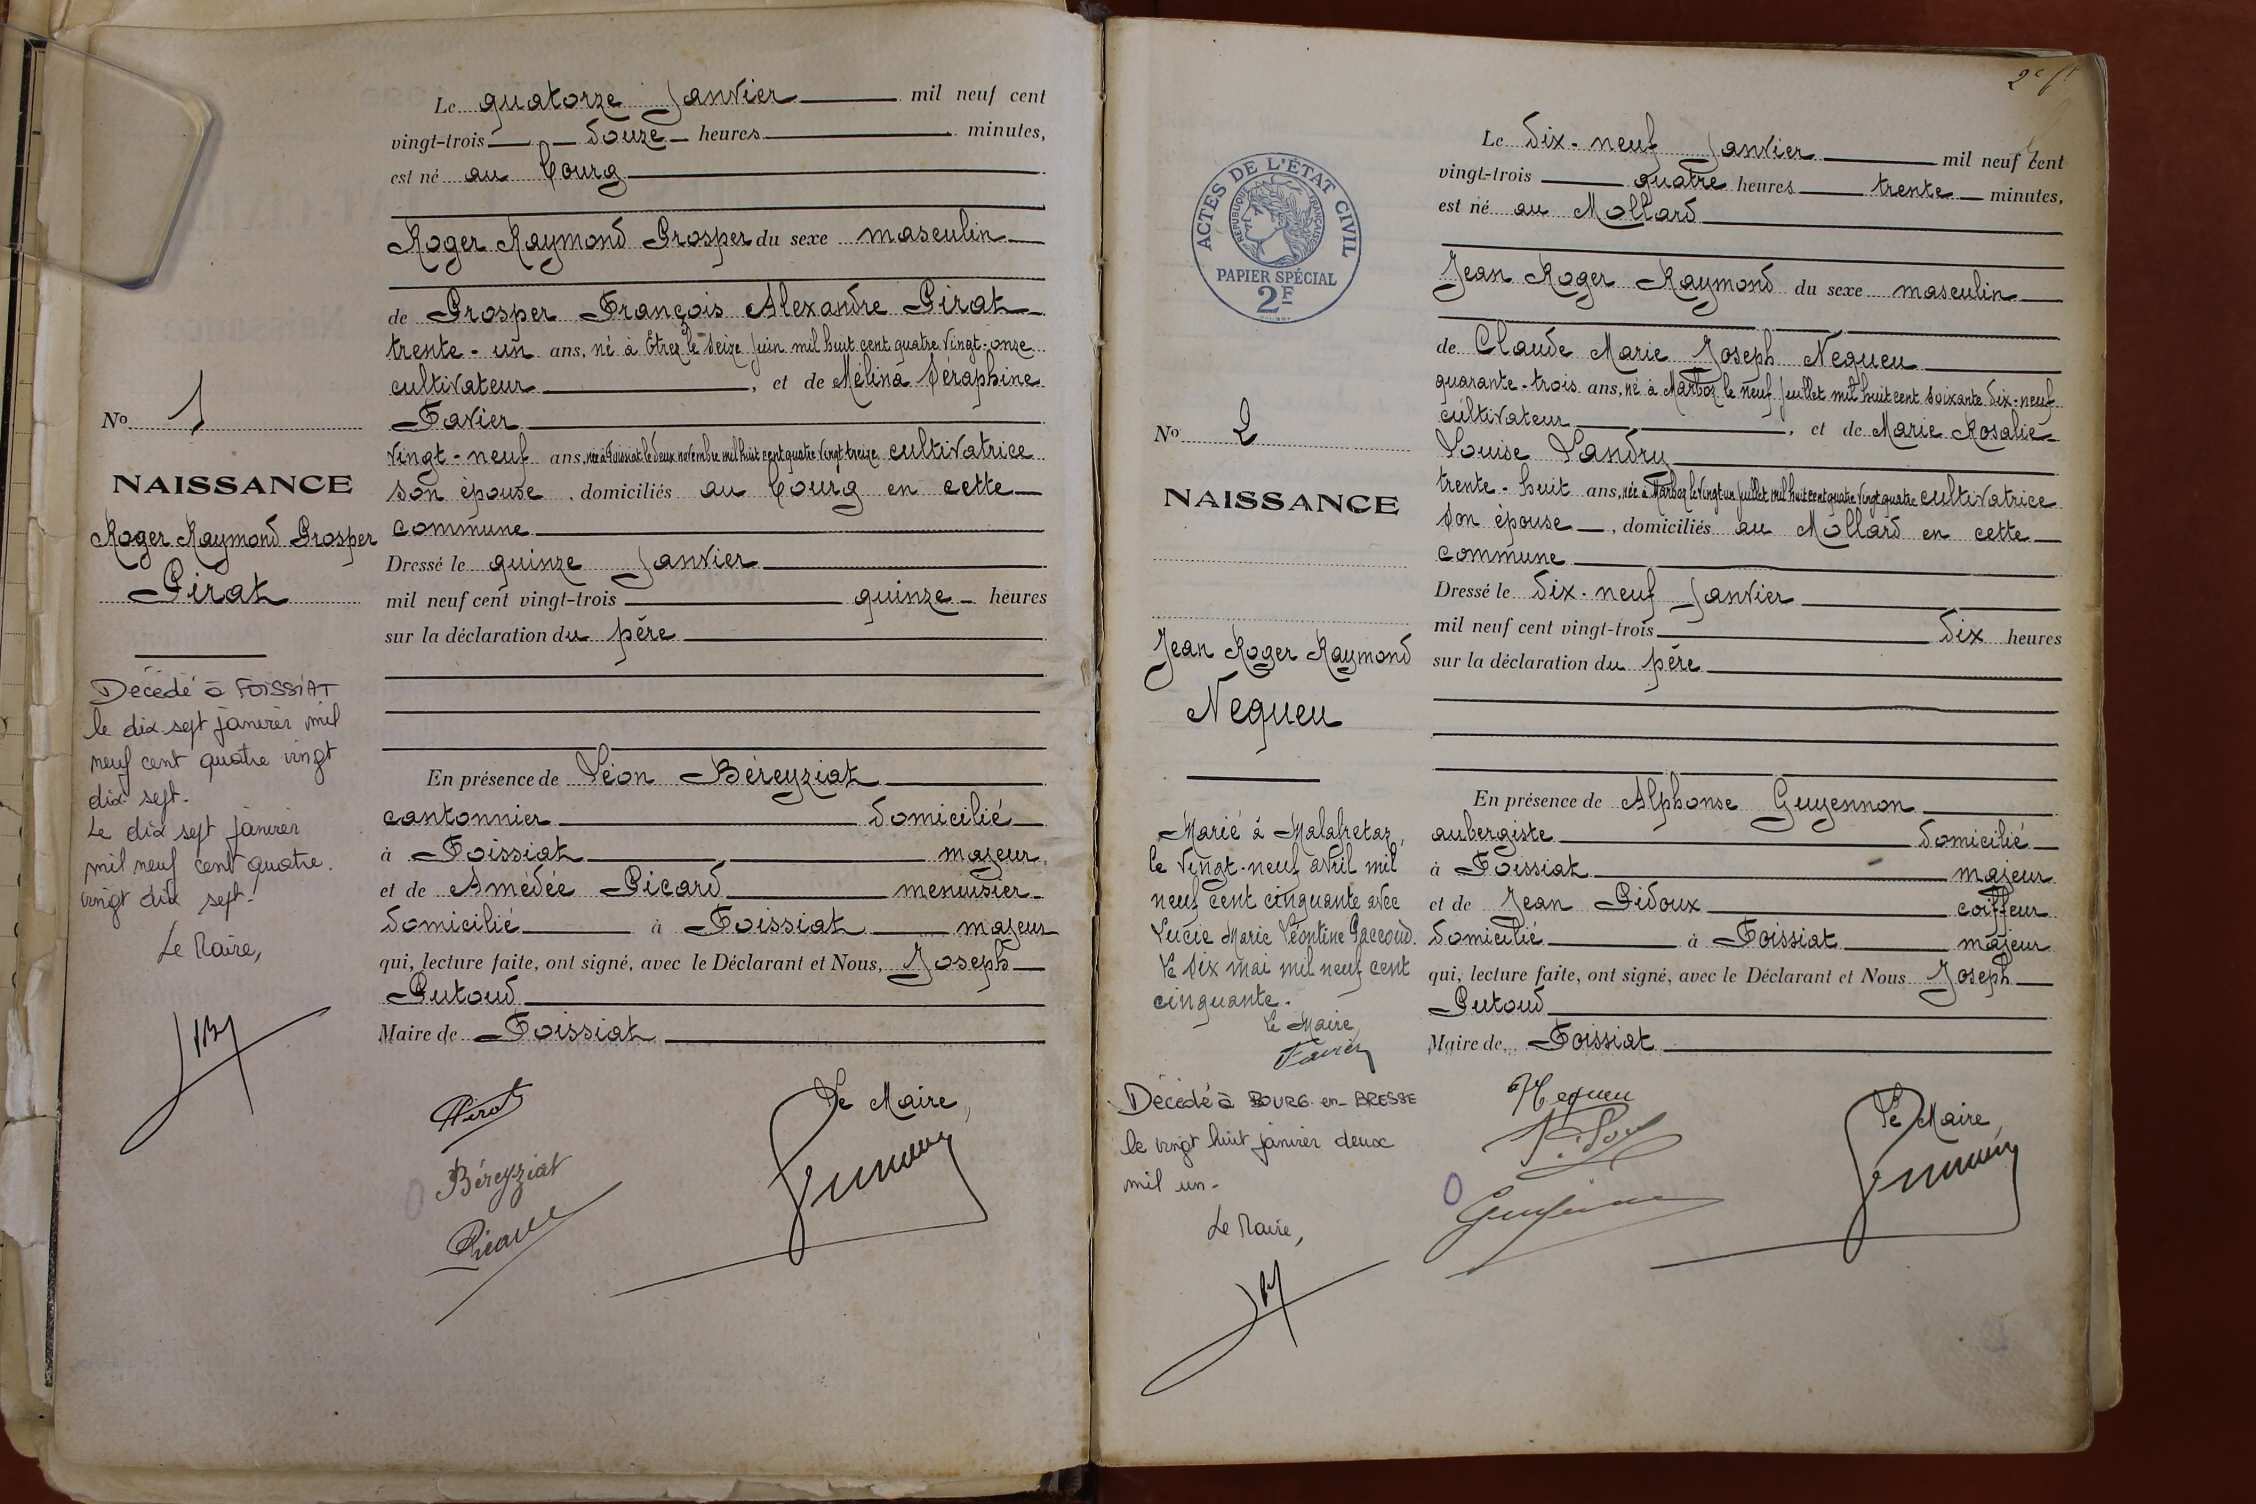 Le quatorze Janvier mil neuf cent
vingt-trois douze heures minutes,
est né au Bourg
Roger Raymond Prosper du sexe masculin
de Prosper François Alexandre Pirat
trente-un ans, né à Etrez le seize Juin mil huit cent quatre vingt-onze
cultivateur, et de Mélina Séraphine
Favier
vingt-neuf ans, née à Foissiat le deux novembre mil huit cent quatre vingt treize cultivatrice
son épouse, domiciliés au Bourg en cette
commune
Dressé le quinze Janvier
mil neuf cent vingt-trois quinze heures
sur la déclaration du père
En présence de Léon Béreyziat
cantonnier domicilié
à Foissiat majeur,
et de Amédée Picard menuisier
domicilié à Foissiat majeur
qui, lecture faite, ont signé, avec le Déclarant et Nous, Joseph
Putoud
Maire de Foissiat
Le Maire,
Pirat
Béreyziat
Picard
No 1
NAISSANCE
Roger Raymond Prosper
Pirat
Décédé à FOISSIAT
le dix sept janvier mil
neuf cent quatre vingt
dix sept.
Le dix sept janvier
mil neuf cent quatre.
vingt dix sept.
Le Maire,
2e ft
ACTES DE L'ÉTAT CIVIL
RÉPUBLIQUE FRANÇAISE
PAPIER SPÉCIAL
2F
Le Dix-neuf Janvier mil neuf cent
vingt-trois quatre heures trente minutes,
est né au Mollard
Jean Roger Raymond du sexe masculin
de Claude Marie Joseph Nequeu
quarante-trois ans, né à Marboz le neuf Juillet mil huit cent soixante dix-neuf
cultivateur, et de Marie Rosalie
Louise Landru
trente-huit ans, née à Marboz le vingt un Juillet mil huit cent quatre vingt quatre cultivatrice
son épouse, domiciliés au Mollard en cette
commune
Dressé le Dix-neuf Janvier
mil neuf cent vingt-trois Dix heures
sur la déclaration du père
En présence de Alphonse Guyennon
aubergiste domicilié
à Foissiat majeur
et de Jean Pidoux coiffeur
domicilié à Foissiat majeur
qui, lecture faite, ont signé, avec le Déclarant et Nous Joseph
Putoud
Maire de Foissiat
Le Maire,
Nequeu
No 2
NAISSANCE
Jean Roger Raymond
Nequeu
Marié à Malafretaz,
le vingt-neuf avril mil
neuf cent cinquante avec
Lucie Marie Léontine Paccoud.
Le Dix mai mil neuf cent
cinquante.
Le Maire,
Favier
Décédé à BOURG-en-BRESSE
le vingt huit janvier deux
mil un.
Le Maire,